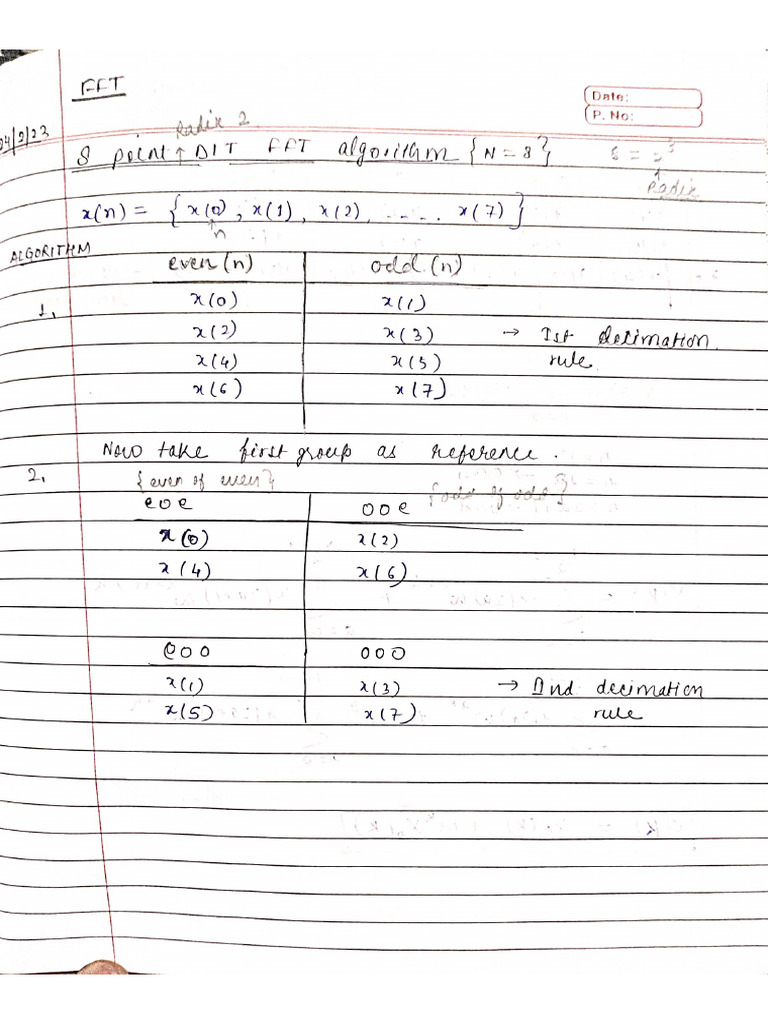 FFT
Date:
P. No:
04/2/23
Radix 2
8 point ↑ DIT FFT algorithm {N = 8} 8 = 2³
↑
Radix
x(n) = { x(0), x(1), x(2), ...... x(7)}
↑
n
ALGORITHM
even (n) odd (n)
1. x(0) x(1)
x(2) x(3) → Ist decimation
x(4) x(5) rule
x(6) x(7)
Now take first group as reference.
2. {even of even} {odd of odd}
eoe ooe
x(0) x(2)
x(4) x(6)
eoo ooo
x(1) x(3) → IInd decimation
x(5) x(7) rule